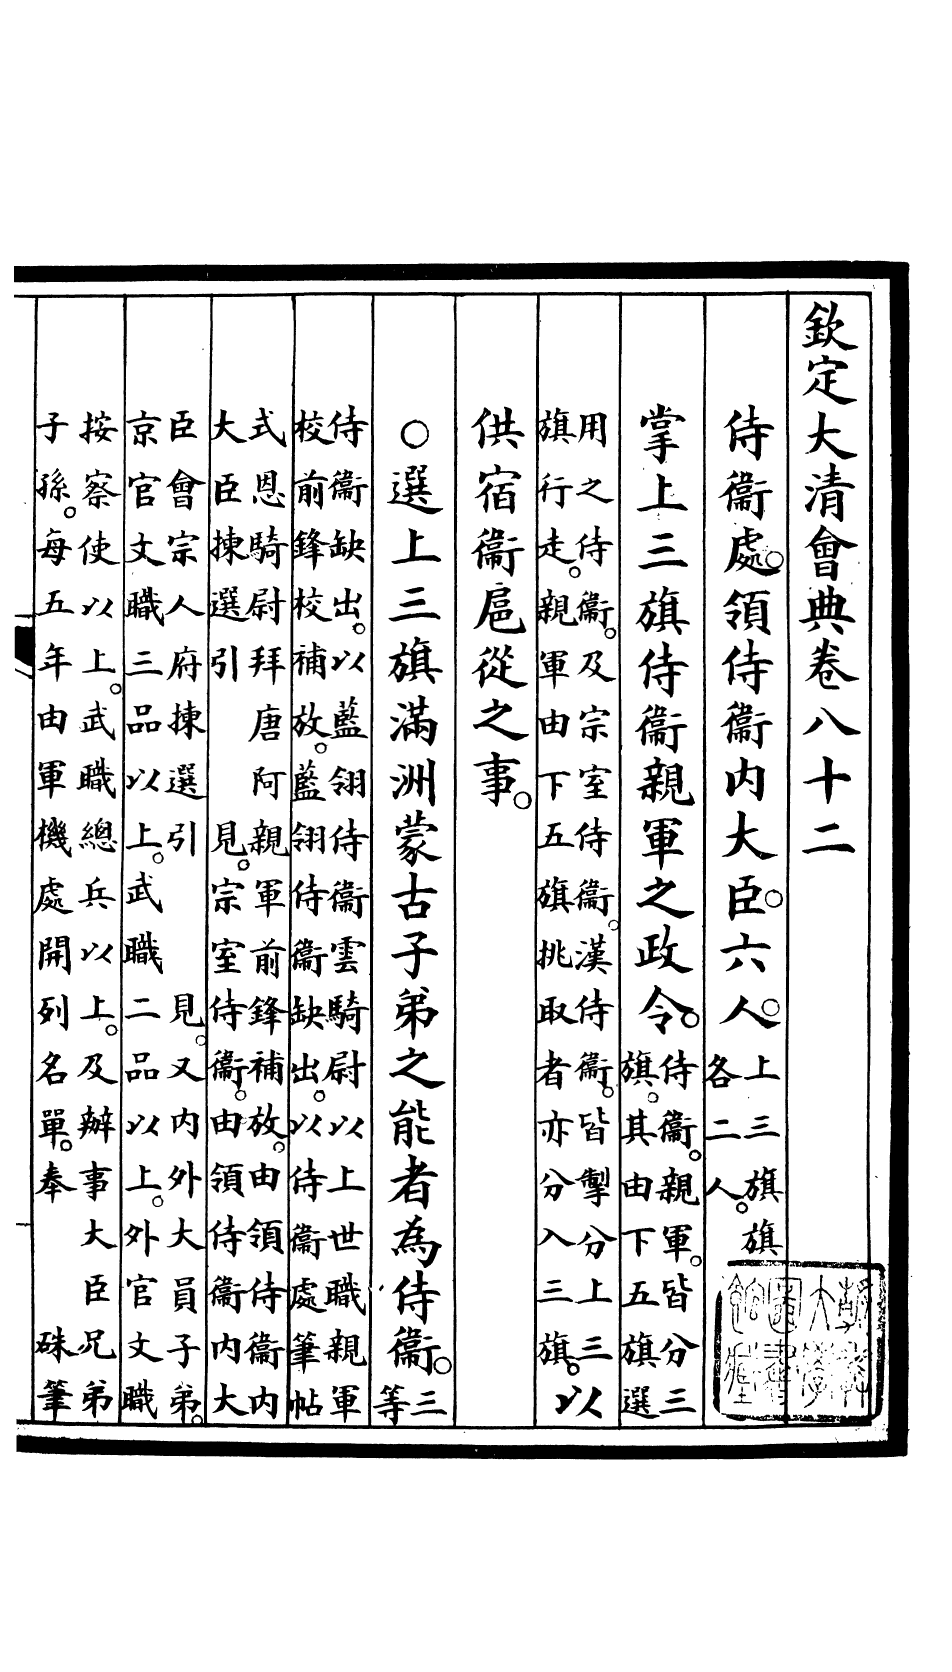 欽定大清會典卷八十二
侍衞處。領侍衞內大臣。六人。上三旗旗
各二人。
掌上三旗侍衞親軍之政令。侍衞。親軍。皆分三
旗。其由下五旗選
用之侍衞。及宗室侍衞。漢侍衞。皆掣分上三
旗行走。親軍由下五旗挑取者亦分入三旗。以
供宿衞扈從之事。
○選上三旗滿洲蒙古子弟之能者為侍衞。三
等
侍衞缺出。以藍翎侍衞雲騎尉以上世職親軍
校前鋒校補放。藍翎侍衞缺出。以侍衞處筆帖
式恩騎尉拜唐阿親軍前鋒補放。由領侍衞內
大臣揀選引　見。宗室侍衞。由領侍衞內大
臣會宗人府揀選引　見。又內外大員子弟。
京官文職三品以上。武職二品以上。外官文職
按察使以上。武職總兵以上。及辦事大臣兄弟
子孫。每五年由軍機處開列名單。奉　硃筆